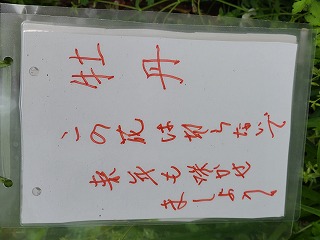 牡丹
この花は切らないで
来年も咲かせ
ましょう